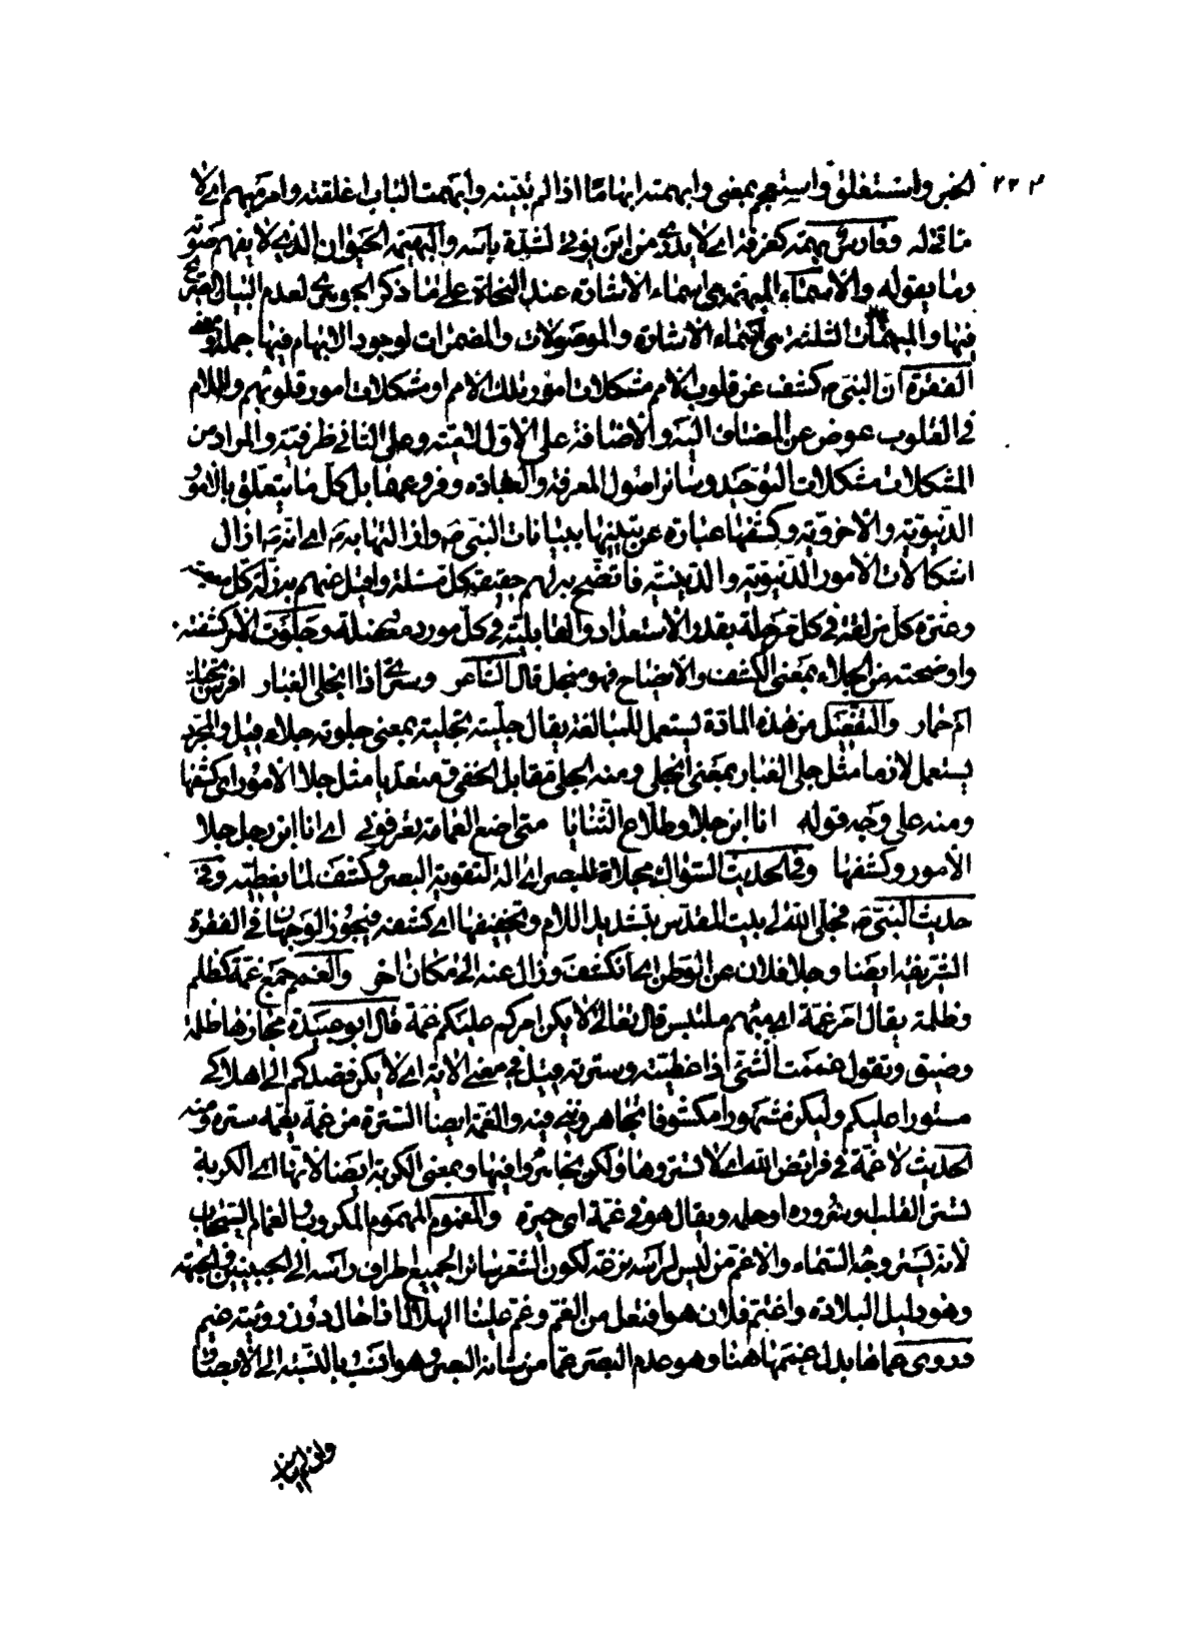 ٢٢٣
الخبر واستغلق واستعجم بمعنى وابهمته ابهاما اذا لم تبيّنه وابهمت الباب اغلقته وامر مبهم اى لا
مأتى له وفارس بهمة كغرفة اى لا يدرى من اين يؤتى لشدّة باسه والبهيمة الحيوان الذى لا يفهم صوته
وما يقوله والاسماء المبهمة هى اسماء الاشارة عند النحاة على ما ذكر الجوهرى لعدم البيان الصريح
فيها والمبهمات الثلثة هى اسماء الاشارة والموصولات والمضمرات لوجود الابهام فيها جملة ومعنى
الفقرة ان النبى ص كشف عن قلوب الامم مشكلات امور تلك الامم او مشكلات امور قلوبهم واللام
فى القلوب عوض عن المضاف اليه والاضافة على الاوّل لاميّة وعلى الثانى ظرفيّة والمراد من
المشكلات مشكلات التوحيد وسائر اصول المعرفة والعبادة وفروعها بل كل ما يتعلّق بالامور
الدّنيويّة والاخرويّة وكشفها عبارة عن تبيينها ببيانات النبى ص وازالتها به ص اى انه ص ازال
اشكالات الامور الدّنيويّة والدّينيّة فاتّضح به لهم حقيقة كل مسئلة واقيل عنهم به زلّة كلّ
وعثرة كلّ مزلقة فى كل مرحلة بقدر الاستعداد والقابليّة فى كلّ مورد معضلة وجلوت الامر كشفته
واوضحته من الجلاء بمعنى الكشف والايضاح فهو منجل قال الشاعر وسترى اذا انجلى الغبار افرس تحتك
ام حمار والتفعيل من هذه المادّة يستعمل للمبالغة يقال جلّيته تجلية بمعنى جلوته جلاء قيل والمجرّد
يستعمل لازما مثل جلى الغبار بمعنى انجلى ومنه الجلىّ مقابل الخفىّ ومتعديا مثل جلا الامور اى كشفها
ومنه على وجه قوله انا ابن جلا وطلّاع الثّنايا متى اضع العمامة تعرفونى اى انا ابن رجل جلا
الامور وكشفها وفى الحديث السّواك مجلاة للبصر اى آلة لتقوية البصر وكشف لما يغطّيه وفى
حديث النبىّ ص فجلّى الله لى بيت المقدّس بتشديد اللام وتخفيفها اى كشفه فيجوز الوجهان فى الفقرة
الشريفة ايضا وجلا فلان عن الوطن اى انكشف وزال عنه الى مكان اخر والغمم جمع غمّة كظلم
وظلمة يقال امر غمّة اى مبهم ملتبس قال تعالى لا يكن امركم عليكم غمّة قال ابو عبيدة مجازها ظلمة
وضيق وتقول غممت الشئ اذا غطّيته وسترته قيل فى معنى الاية اى لا يكن قصدكم الى اهلاكى
مستورا عليكم وليكن مشهورا مكشوفا تجاهرونى فيه والغمّة ايضا السّترة من غمّه يغمّه ستره ومنه
الحديث لا غمّة فى فرائض الله اى لا تستروها ولكن تجاهروا فيها وبمعنى الكربة ايضا لانّها اى الكربة
تستر القلب وسروره او حلمه ويقال هو فى غمّة اى حيرة والمغموم المهموم المكروب والغمام السّحاب
لانه يستر وجه السّماء والاغمّ من ليس لراسه نزعة لكون الشعر ساترا لجميع اطراف راسه الى الجبينين والجبهة
وهو دليل البلادة واغتمّ فلان هو افتعل من الغمّ وغمّ علينا الهلال اذا حال دون رؤيته غيم
وروى عماها بدل غممها هنا وهو عدم البصر عمّا من شانه البصر وهو انسب بالنّسبة الى الابصار